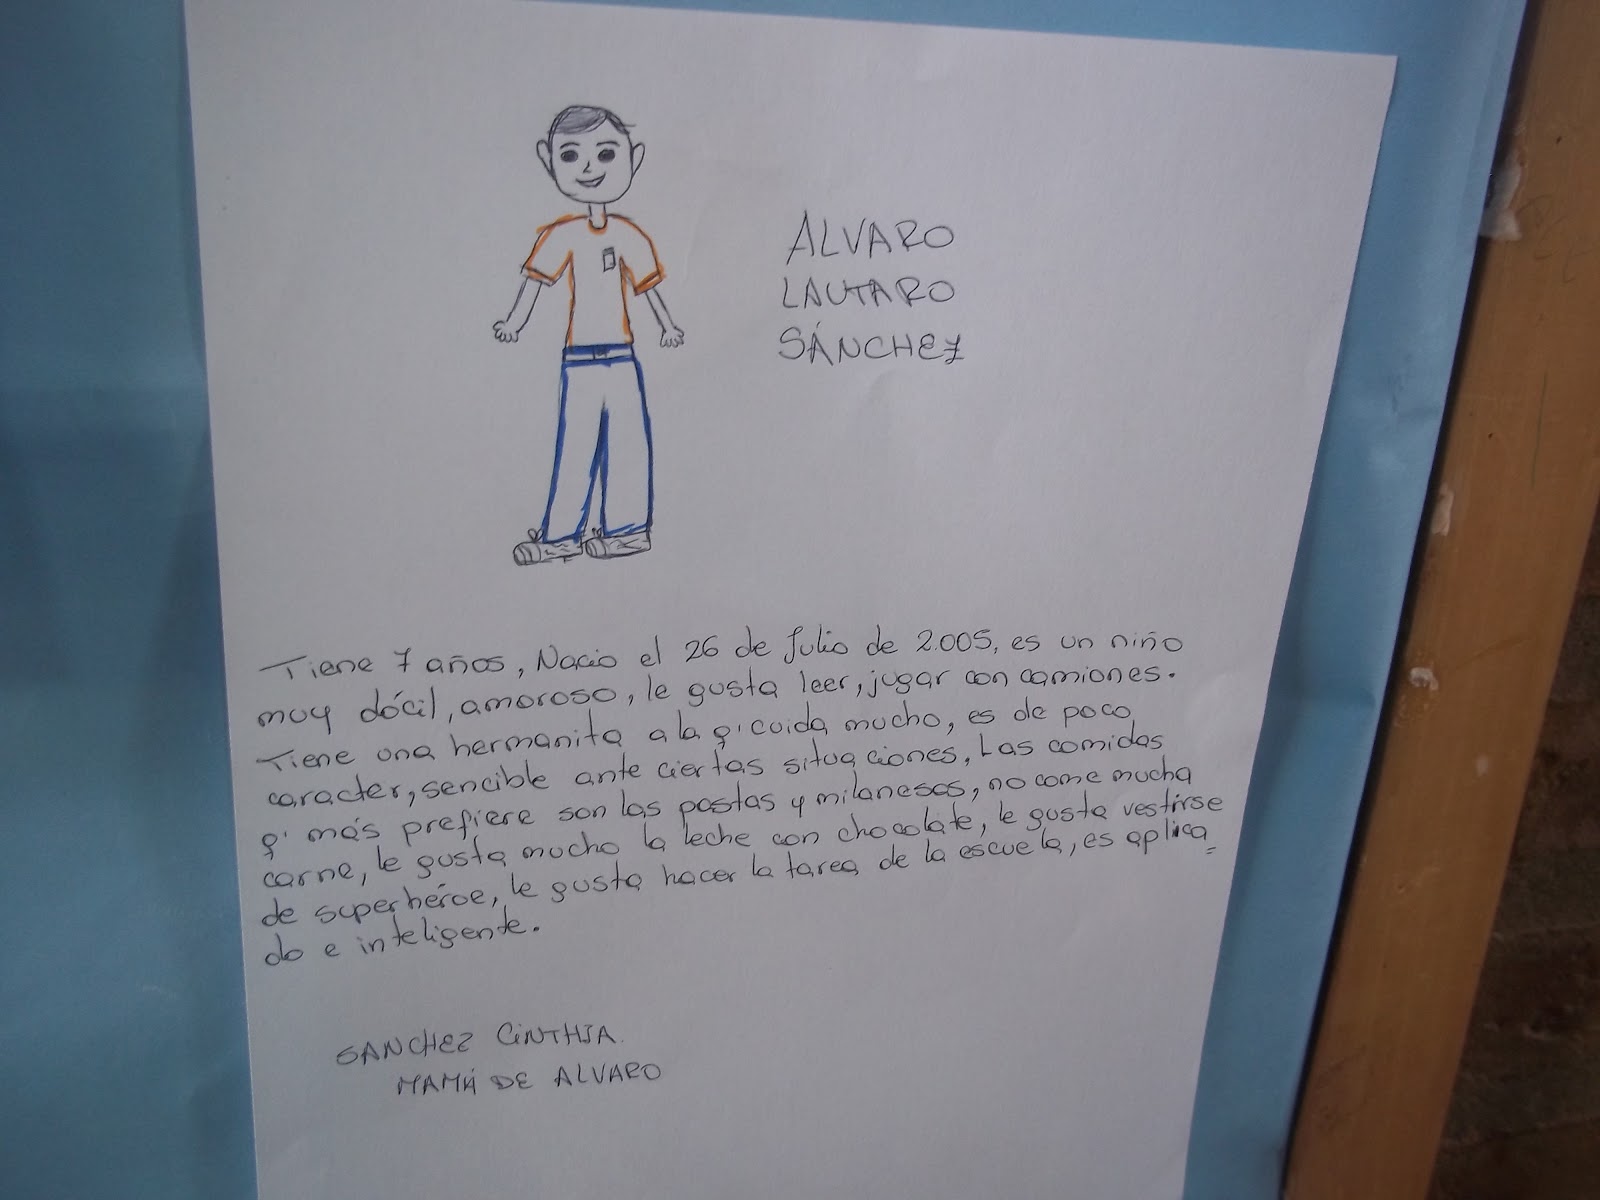 ALVARO
LAUTARO
SÁNCHEZ
Tiene 7 años, Nacio el 26 de Julio de 2.005, es un niño
muy dócil, amoroso, le gusta leer, jugar con camiones.
Tiene una hermanita a la q' cuida mucho, es de poco
caracter, sencible ante ciertas situaciones, Las comidas
q' más prefiere son las pastas y milanesas, no come mucha
carne, le gusta mucho la leche con chocolate, le gusta vestirse
de superhéroe, le gusta hacer la tarea de la escuela, es aplica=
do e inteligente.
SANCHEZ CINTHIA.
MAMÁ DE ALVARO